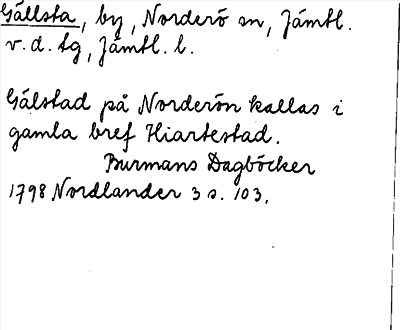 Gällsta, by, Norderö sn, Jämtl.
v. d. tg, Jämtl. l.
Gälstad på Norderön kallas i
gamla bref Hiartestad.
Burmans Dagböcker
1798 Nordlander 3 s. 103.